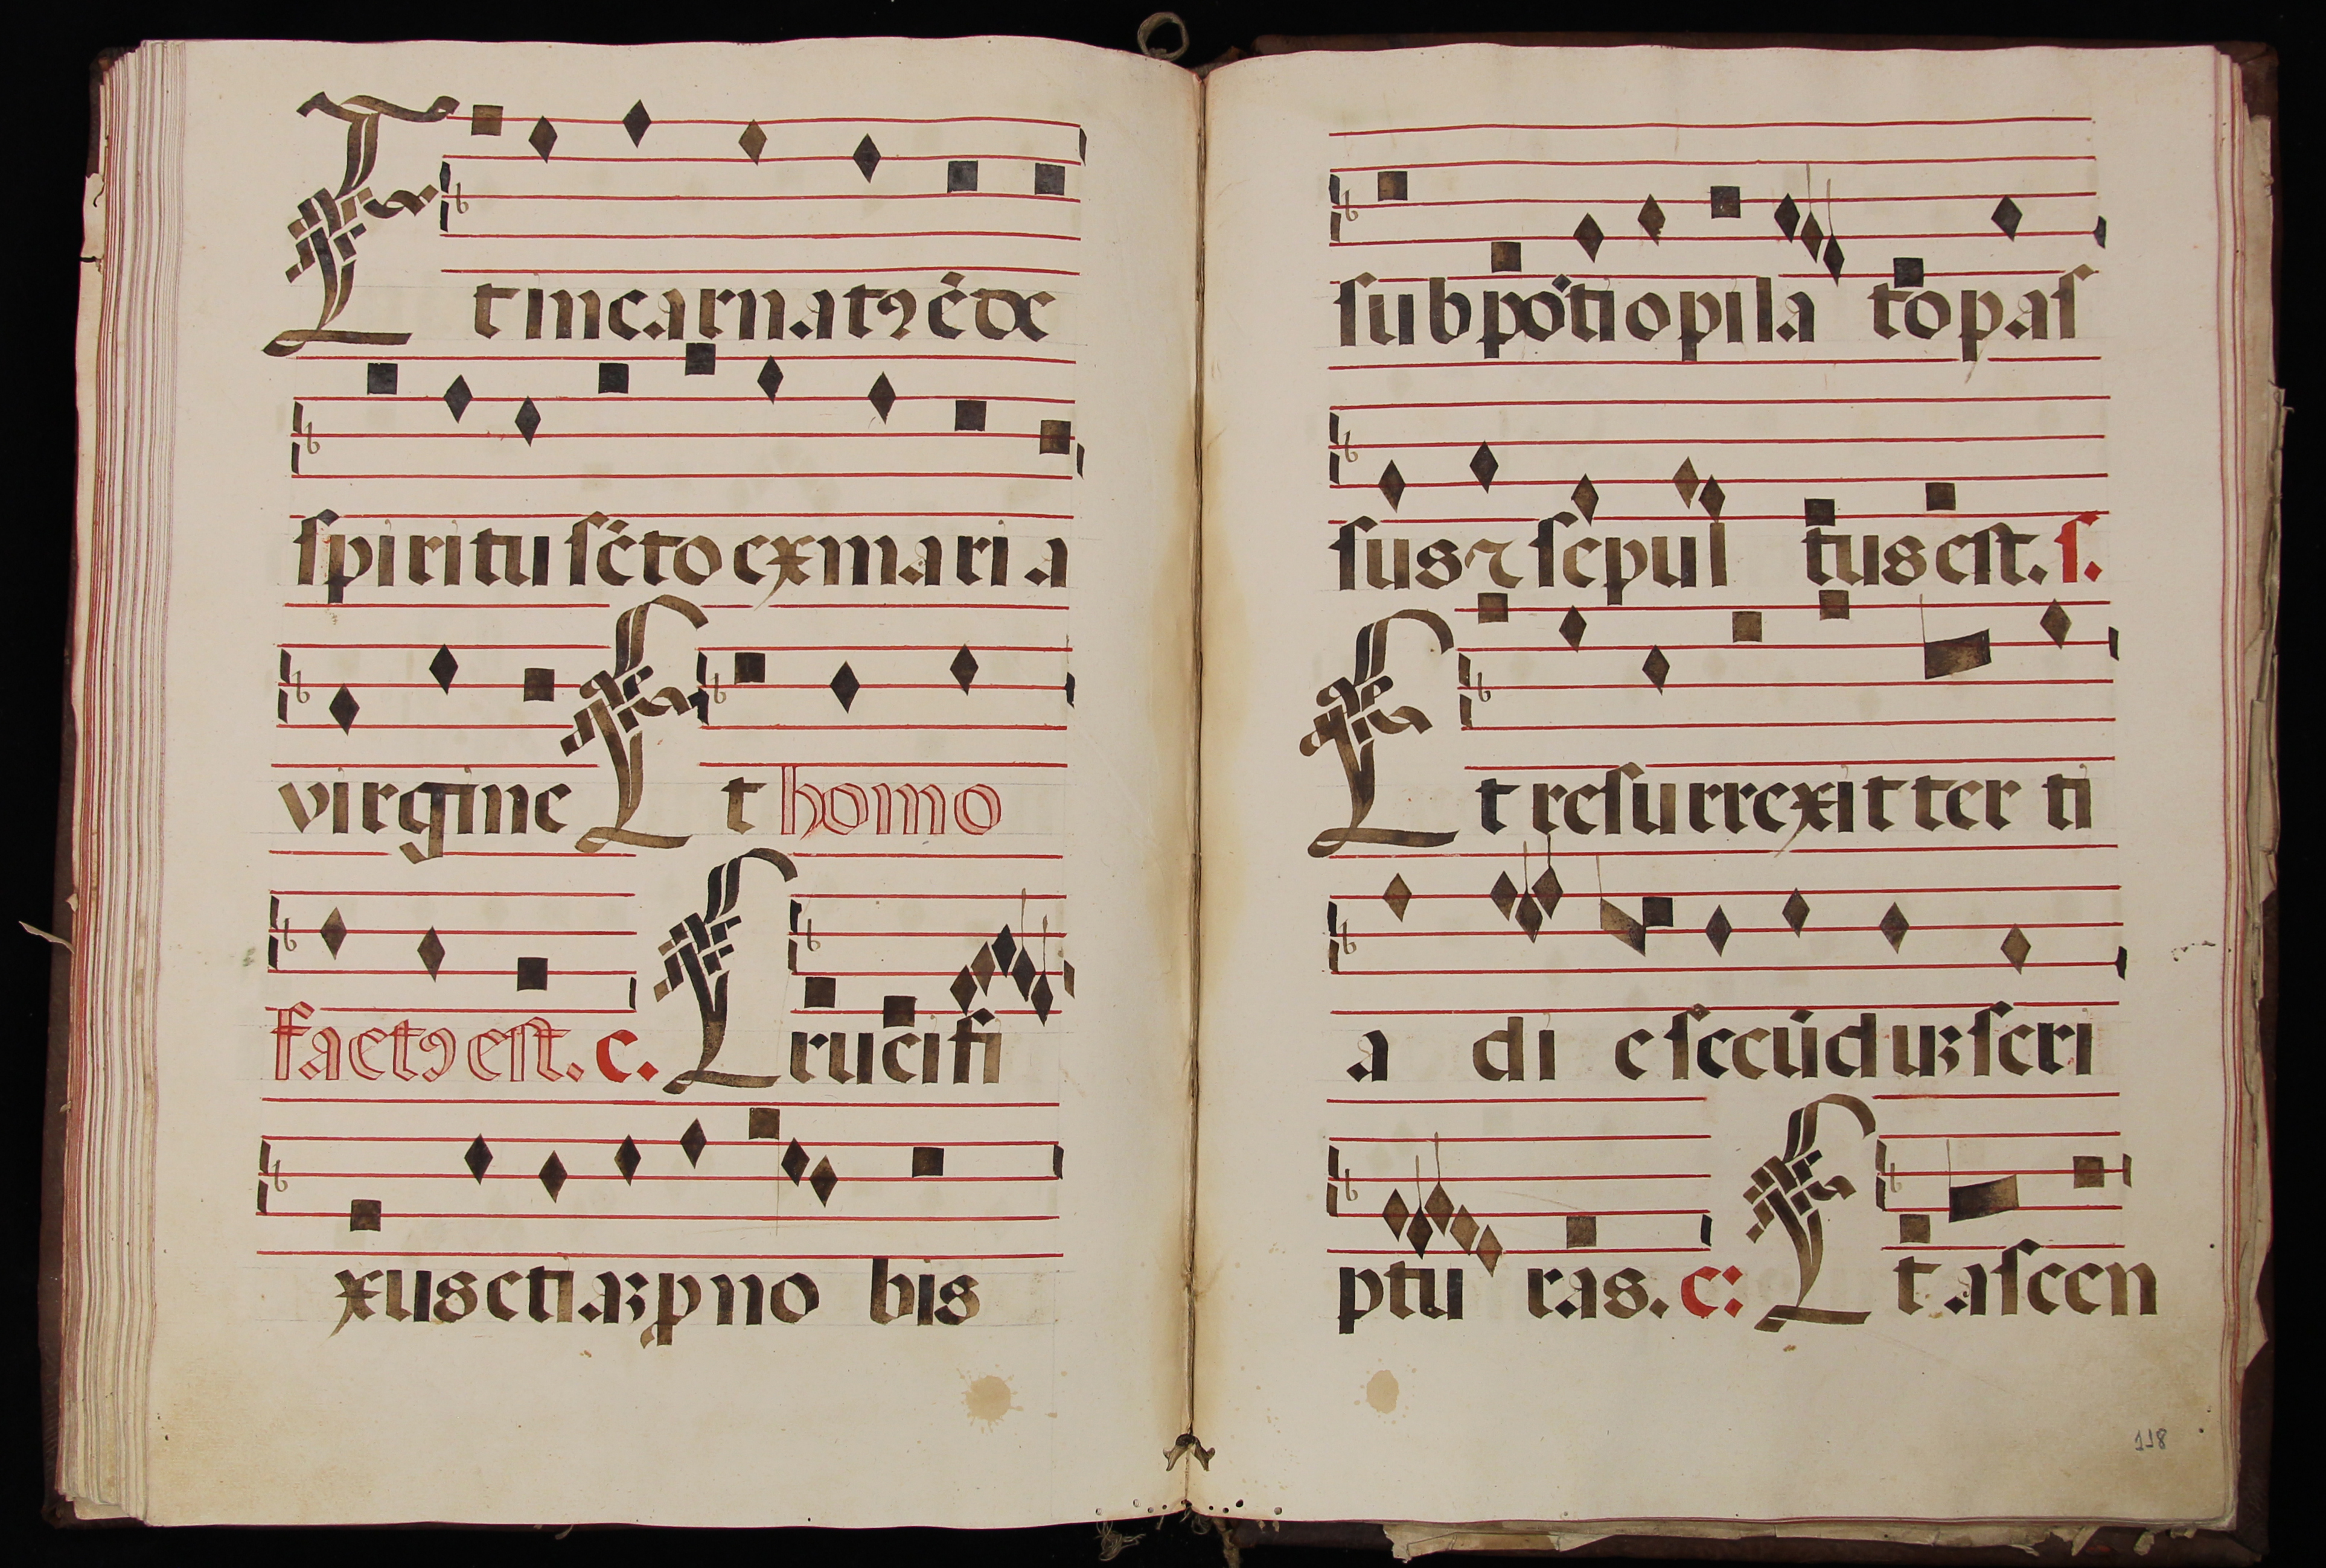 Et incarnatꝰ ē de
spiritu scto ex maria
virgine Et homo
factꝰ est. c. Crucifi
xus etiaꝫ p no bis
sub pōtio pila to pas
sus ⁊ sepul tus est. s.
Et resurrexit ter ti
a di e secūduꝫ scri
ptu ras. c: Et ascen
118